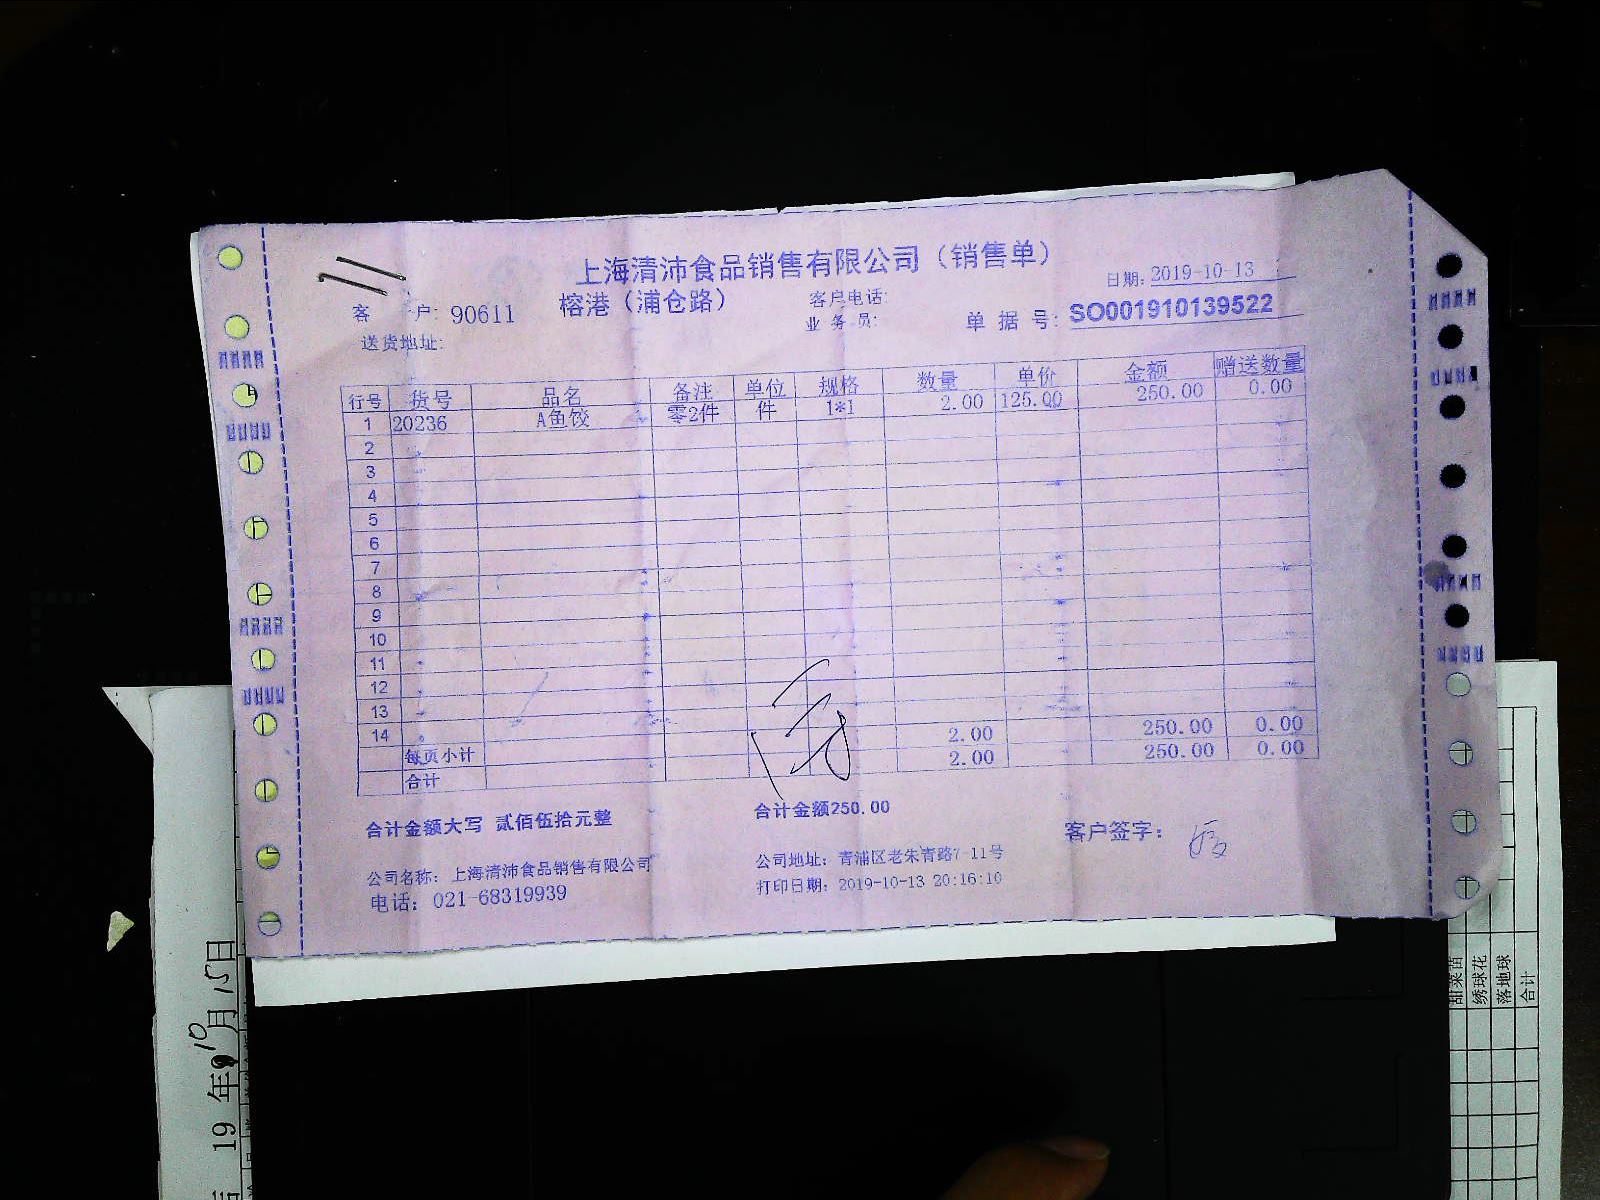 上海清沛食品销售有限公司（销售单）
日期: 2019-10-13
客 户: 90611 榕港（浦仓路） 客户电话:
业务员: 单据号: SO001910139522
送货地址:
行号 货号 品名 备注 单位 规格 数量 单价 金额 赠送数量
1 20236 A鱼饺 零2件 件 1*1 2.00 125.00 250.00 0.00
2
3
4
5
6
7
8
9
10
11
12
13
14
每页小计 2.00 250.00 0.00
合计 2.00 250.00 0.00
合计金额大写 贰佰伍拾元整 合计金额250.00
客户签字:
公司名称: 上海清沛食品销售有限公司 公司地址: 青浦区老朱青路7-11号
电话: 021-68319939 打印日期: 2019-10-13 20:16:10
19 年 10 月 15 日
甜菜苗
绣球花
落地球
合计